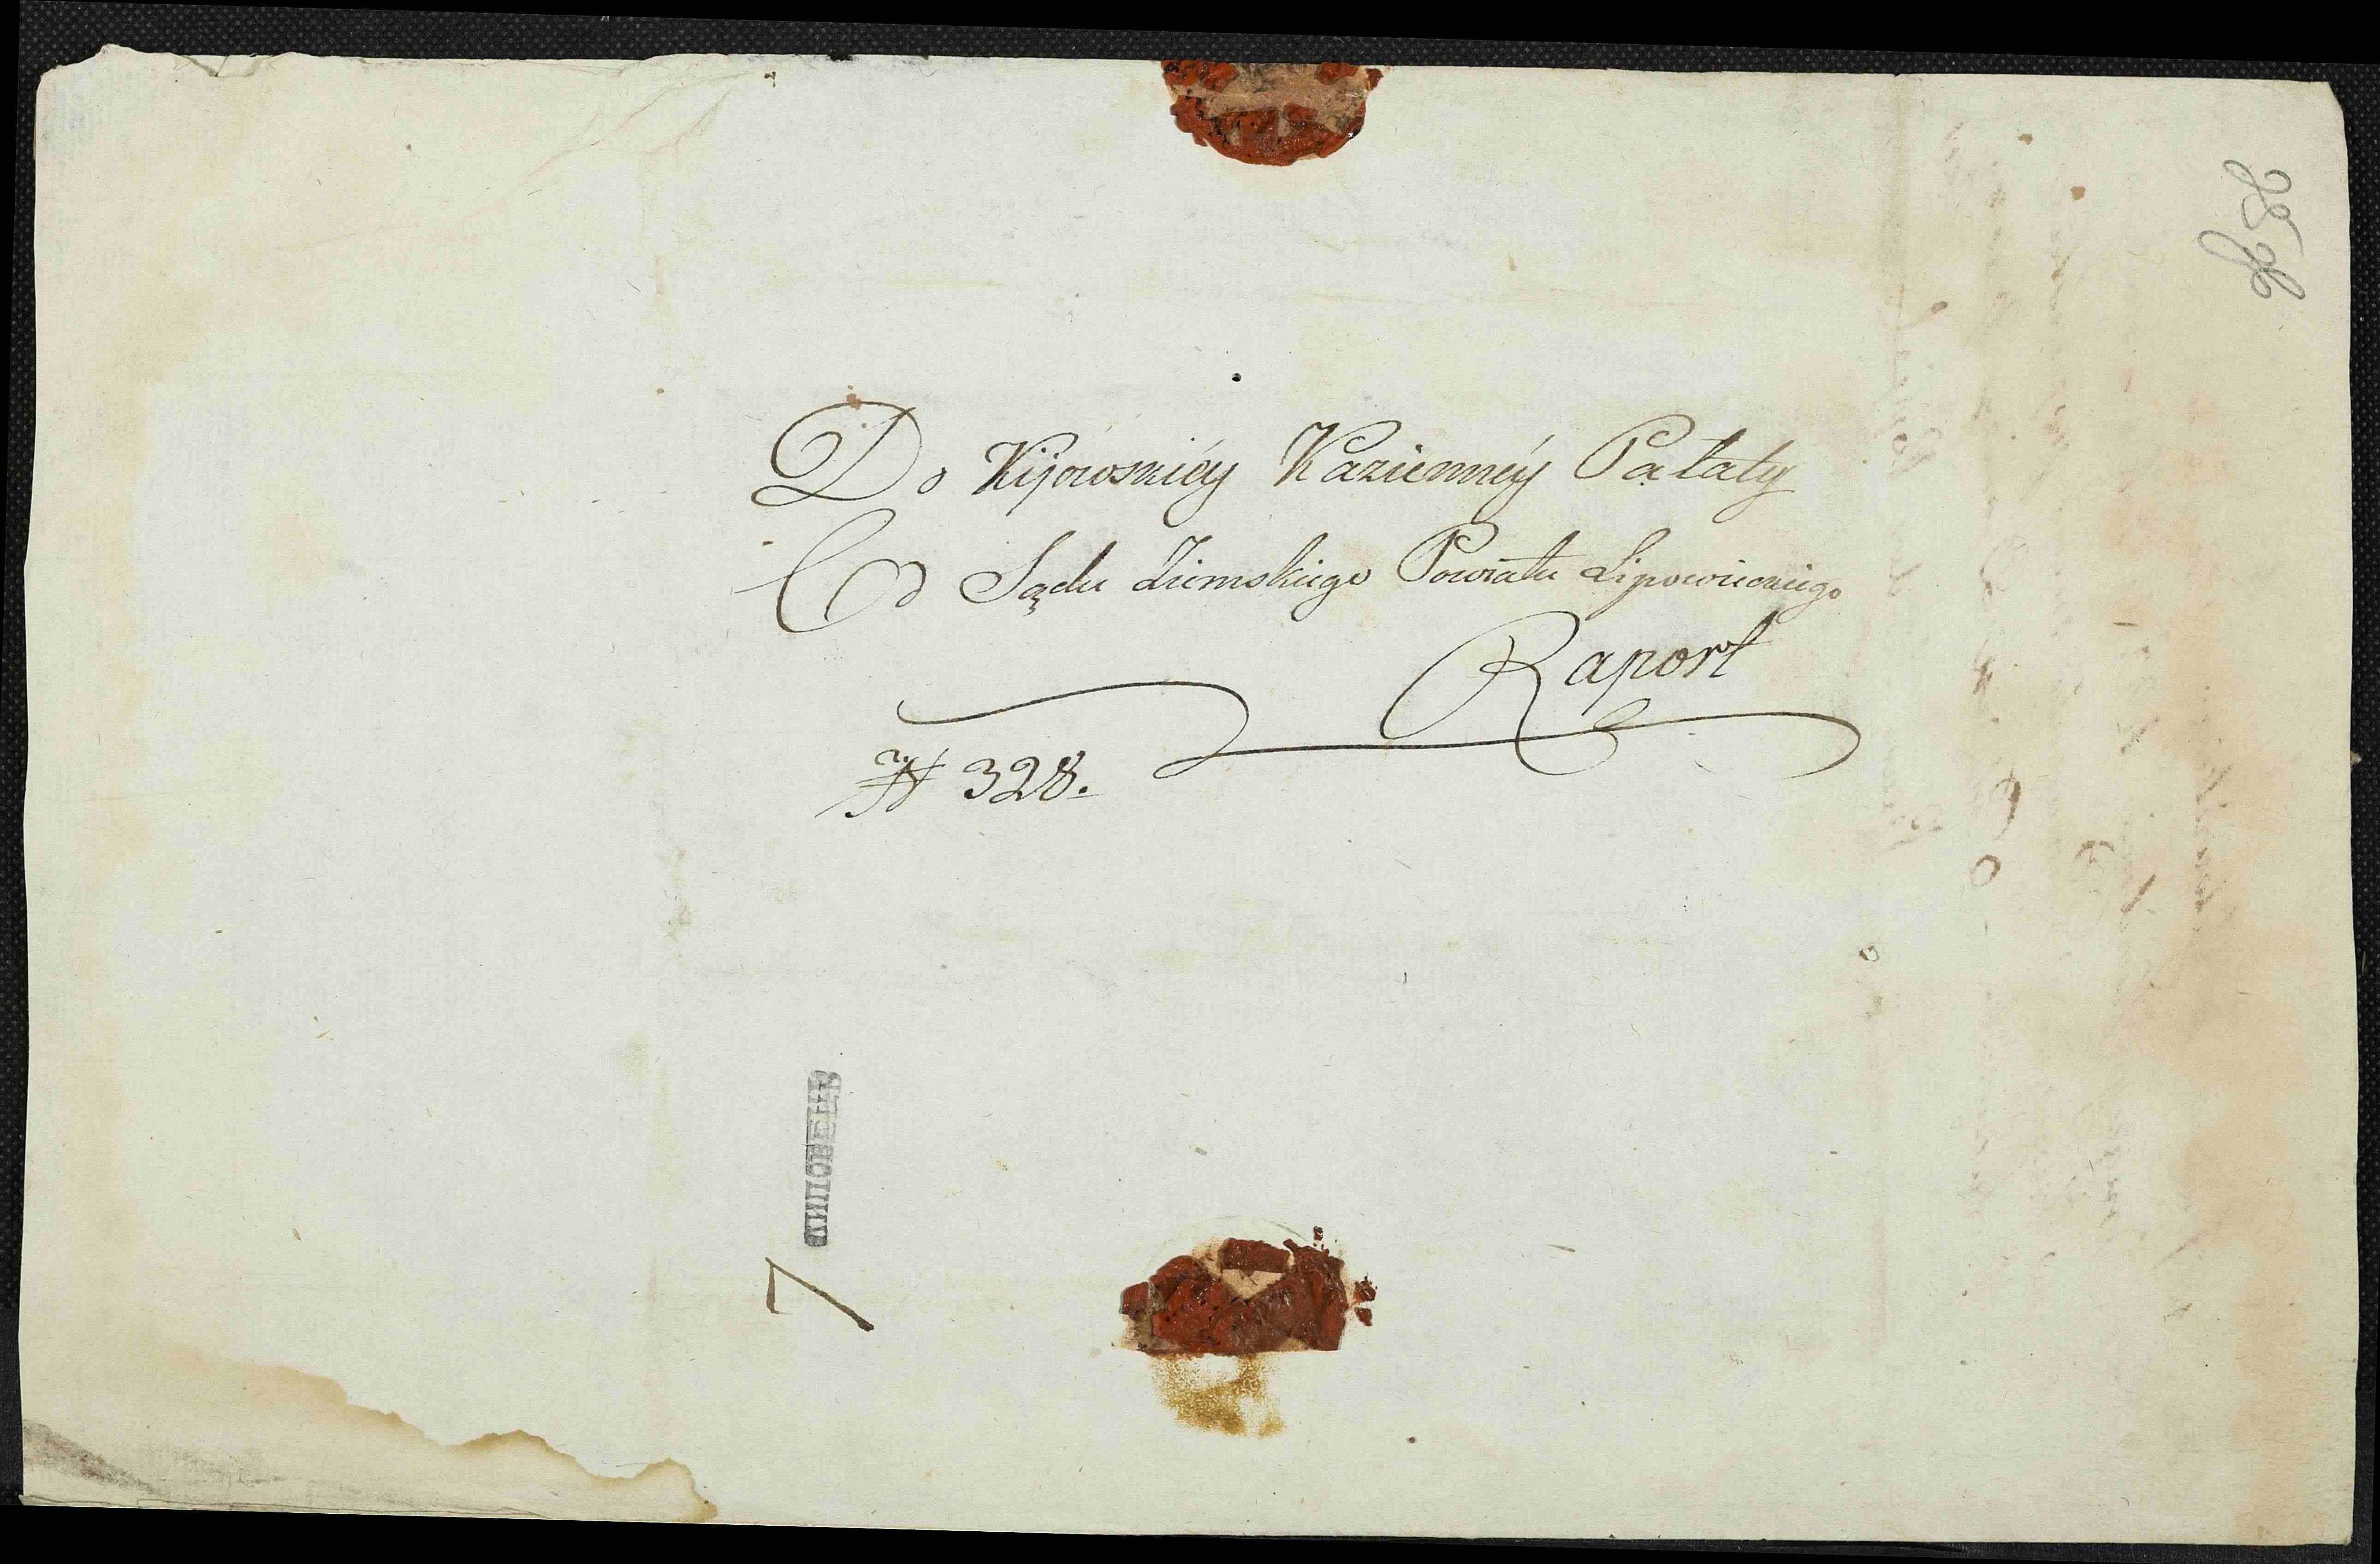 Do Kijowskiéy Kazienneÿ Pałaty
Od Sądu Ziemskiego Powiatu Lipowieckiego
Raport
№ 328.
ЛИПОВЕЦЪ
7